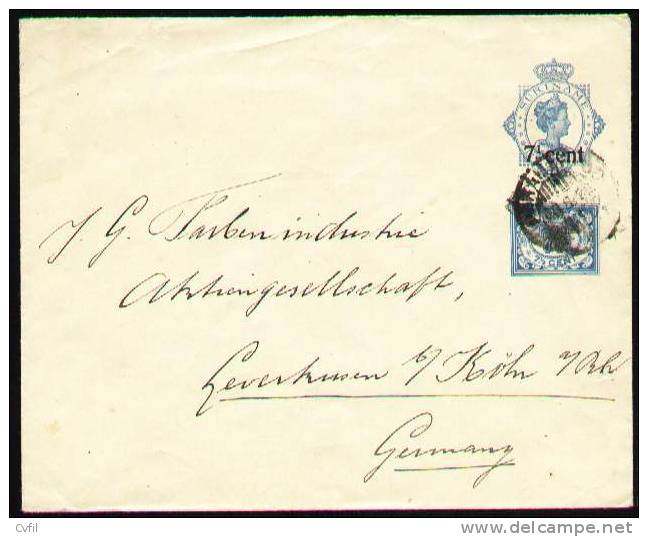 SURINAME
7½ cent
7½ CENT
J. G. Farbenindustrie
Aktiengesellschaft,
Leverkusen b/ Köln a/Rh.
Germany
Cvfil
delcampe.net